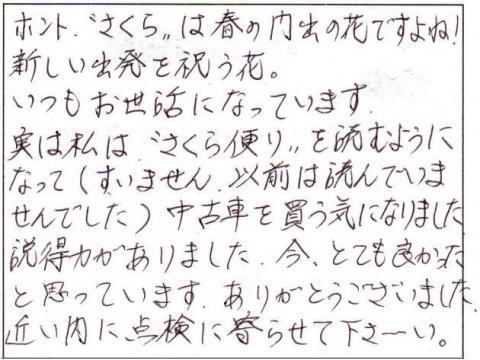 ホント.〝さくら〟は春の門出の花ですよね!
新しい出発を祝う花。
いつもお世話になっています.
実は私は.〝さくら便り〟を読むように
なって(すいません.以前は読んでいま
せんでした)中古車を買う気になりました
説得力がありました.今、とても良かった
と思っています.ありがとうございました.
近い内に点検に寄らせて下さーい。